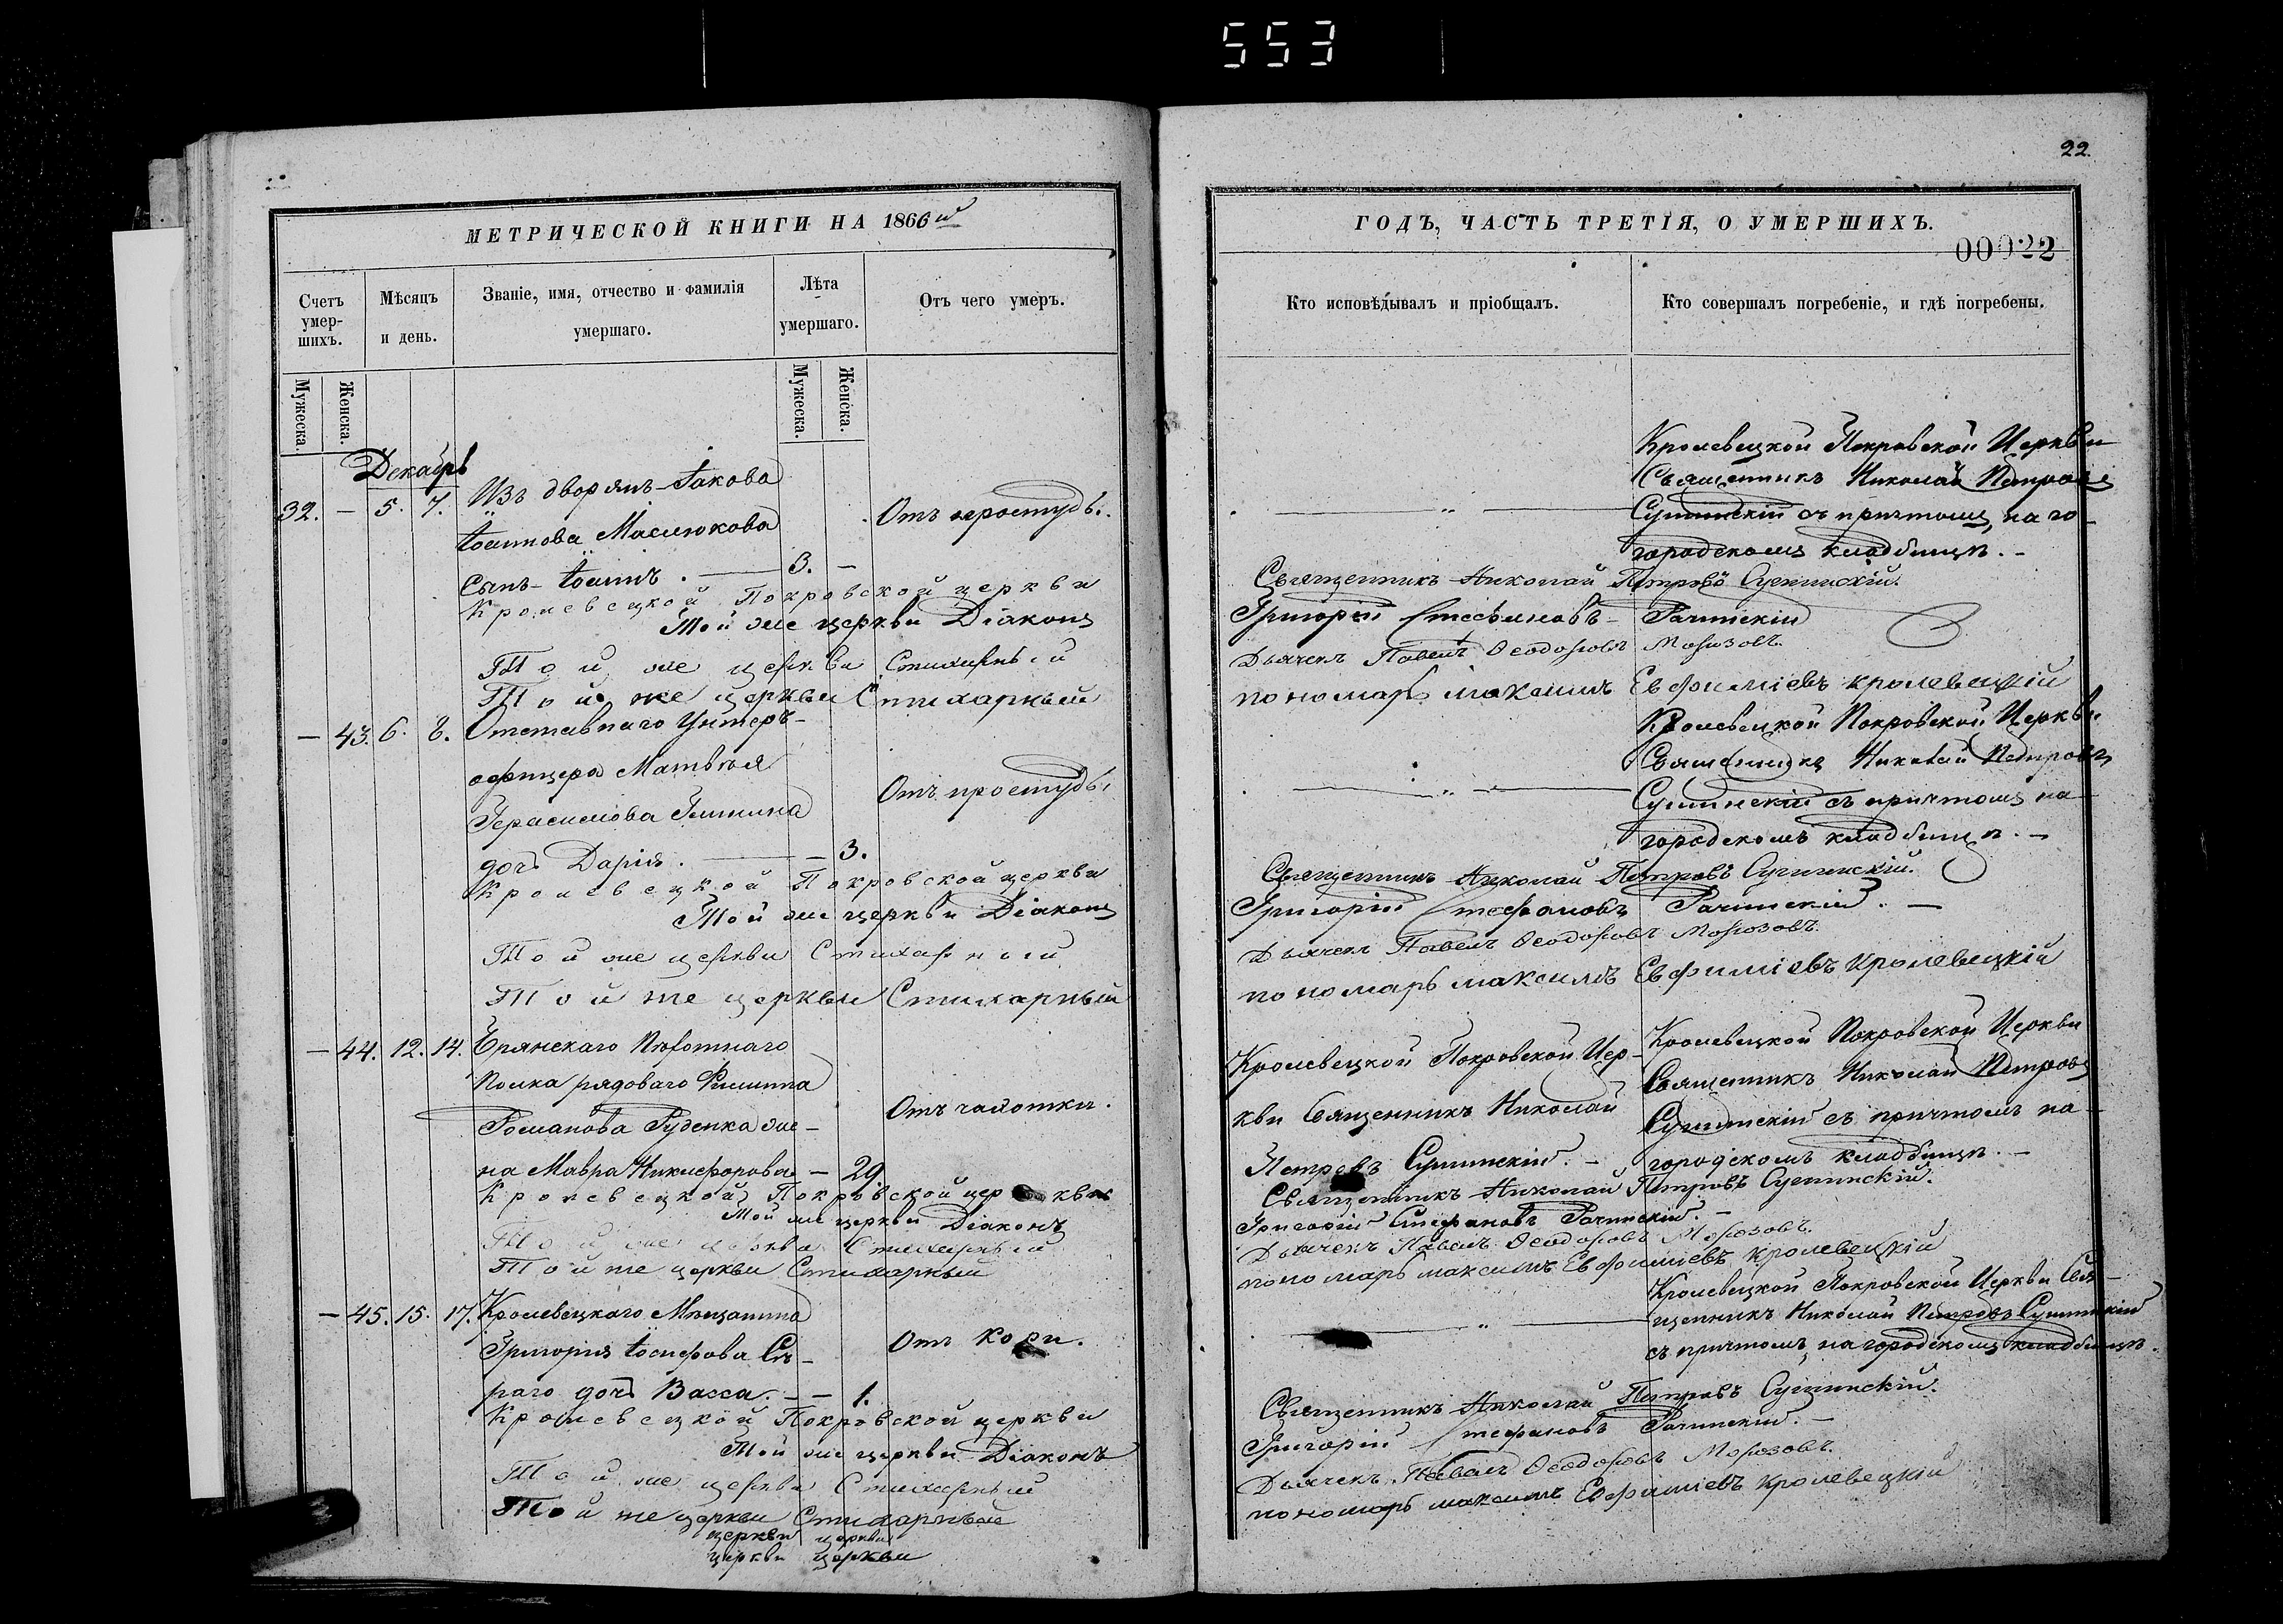 553
22.
МЕТРИЧЕСКОЙ КНИГИ НА 1866й
Счетъ умер-шихъ.
Мѣсяцъ и день.
Званіе, имя, отчество и фамилія умершаго.
Лѣта умершаго.
Отъ чего умеръ.
Мужеска.
Женска.
Мужеска.
Женска.
Декабрь
32. — 5. 7. Изъ дворянъ Іакова
Іоаннова Маслюкова
Сынъ Іоаннъ. — 3. —
Отъ простуды.
Кролевецкой Покровской церкви
Той же церкви Діаконъ
Той же церкви Стихарный
Той же церкви Стихарный
— 43. 6. 8. Отставнаго Унтеръ-
офицера Матвѣя
Герасимова
дочь Дарія. — — 3.
Отъ простуды
Кролевецкой Покровской церкви
Той же церкви Діаконъ
Той же церкви Стихарный
Той же церкви Стихарный
— 44. 12. 14. Брянскаго Пѣхотнаго
Полка рядоваго Филиппа
Романова Руденка же-
на Мавра Никифорова — 29
Отъ чахотки.
Кролевецкой Покровской церкви
Той же церкви Діаконъ
Той же церкви Стихарный
Той же церкви Стихарный
— 45. 15. 17. Кролевецкаго Мѣщанина
Григорія Іосифова Сѣ-
раго дочь Васса. — — 1.
Отъ Кори.
Кролевецкой Покровской церкви
Той же церкви Діаконъ
Той же церкви Стихарный
Той же церкви Стихарный
церкви церкви
церкви церкви
ГОДЪ, ЧАСТЬ ТРЕТІЯ, О УМЕРШИХЪ.
00022
Кто исповѣдывалъ и пріобщалъ.
Кто совершалъ погребеніе, и гдѣ погребены.
Кролевецкой Покровской Церкви
Священникъ Николай Петровъ
Сушинскій съ причтомъ, на го-
городскомъ кладбищѣ. —
Священникъ Николай Петровъ Сушинскій.
Григорій Стефановъ Рачинскій
Дьячекъ Павелъ Ѳеодоровъ Морозовъ.
пономарь максимъ Евфиміевъ кролевецкій
Кролевецкой Покровской Церкви
Священникъ Николай Петровъ
Сушинскій съ причтомъ на
городскомъ кладбищѣ. —
Священникъ Николай Петровъ Сушинскій.
Григорій Стефановъ Рачинскій. —
Дьячекъ Павелъ Ѳеодоровъ Морозовъ.
пономарь максимъ Евфиміевъ Кролевецкій
Кролевецкой Покровской Цер-
кви Священникъ Николай
Петровъ Сушинскій. —
Кролевецкой Покровской Церкви
Священникъ Николай Петровъ
Сушинскій съ причтомъ на
городскомъ кладбищѣ. —
Священникъ Николай Петровъ Сушинскій.
Григорій Стефановъ Рачинскій. —
Дьячекъ Павелъ Ѳеодоровъ Морозовъ.
пономарь максимъ Евфиміевъ Кролевецкій
Кролевецкой Покровской Церкви Свя-
щенникъ Николай Петровъ Сушинскій
съ причтомъ, на городскомъ кладбищѣ.
Священникъ Николай Петровъ Сушинскій.
Григорій Стефановъ Рачинскій. —
Дьячекъ Павелъ Ѳеодоровъ Морозовъ.
пономарь максимъ Евфиміевъ Кролевецкій